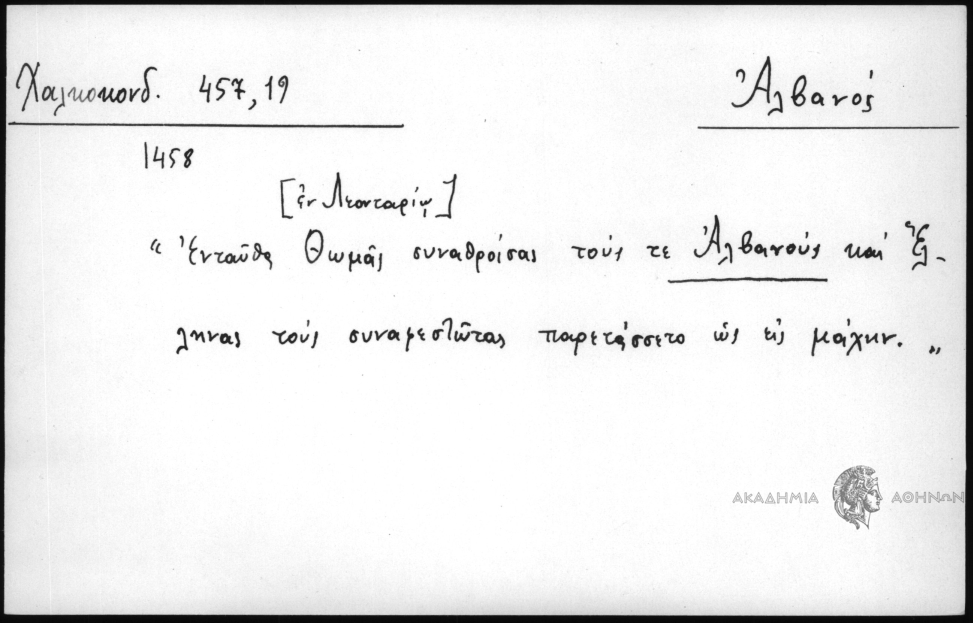 Χαλκοκονδ. 457,19
Ἀλβανός
1458
[ἐν Λεονταρίῳ]
“ Ἐνταῦθα Θωμᾶς συναθροίσας τούς τε Ἀλβανούς καί Ἕλ-
ληνας τούς συναφεστῶτας παρετάσσετο ὡς εἰς μάχην. „
ΑΚΑΔΗΜΙΑ ΑΘΗΝΩΝ